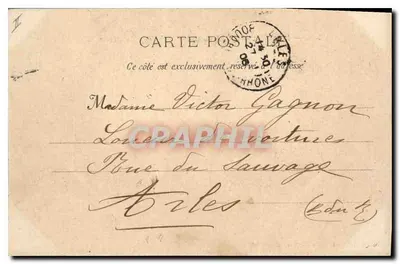 CARTE POSTALE
Ce côté est exclusivement réservé à l'adresse
RHONE
Madame Victor Gagnon
Loueur de voitures
Rue du Sauvage
Arles
(B du R)
CRAPHIL